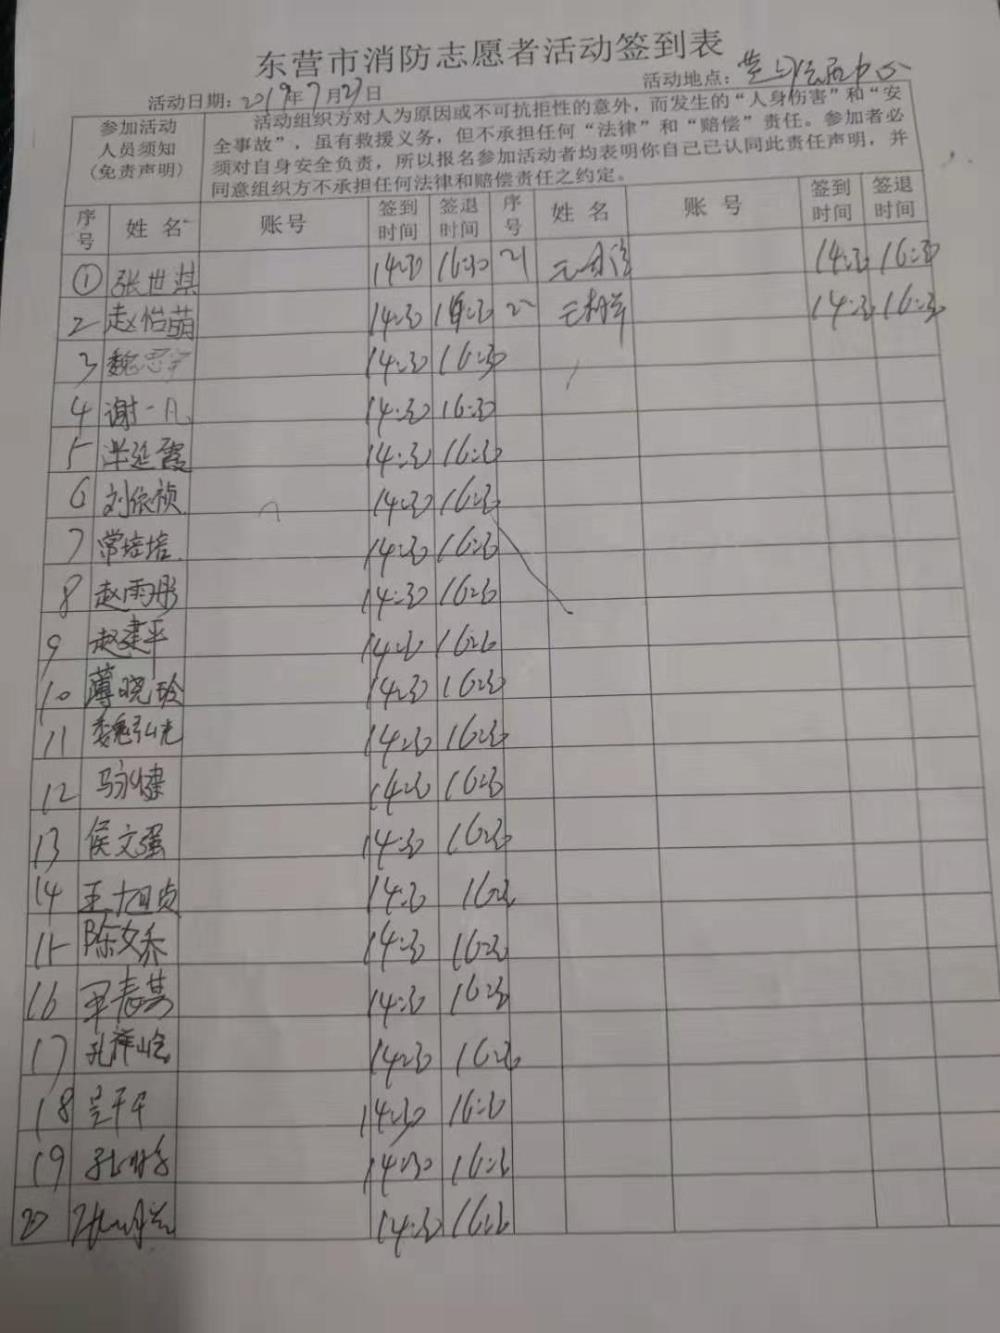 东营市消防志愿者活动签到表
活动日期：2019年7月27日 活动地点：
参加活动人员须知(免责声明)
活动组织方对人为原因或不可抗拒性的意外，而发生的“人身伤害”和“安
全事故”，虽有救援义务，但不承担任何“法律”和“赔偿”责任。参加者必
须对自身安全负责，所以报名参加活动者均表明你自己已认同此责任声明，并
同意组织方不承担任何法律和赔偿责任之约定。
序号 姓名 账号 签到时间 签退时间 序号 姓名 账号 签到时间 签退时间
① 张世淇 14:30 16:30 21 14:30 16:30
2 赵怡萌 14:30 16:30 22 14:30 16:30
3 魏 14:30 16:30
4 谢一凡 14:30 16:30
5 延霞 14:30 16:30
6 刘依祯 14:30 16:30
7 常培培 14:30 16:30
8 赵雨彤 14:30 16:30
9 赵建平 14:30 16:30
10 薄晓玲 14:30 16:30
11 魏弘光 14:30 16:30
12 马永健 14:30 16:30
13 侯文强 14:30 16:30
14 王旭贞 14:30 16:30
15 陈文乔 14:30 16:30
16 14:30 16:30
17 孔祥 14:30 16:30
18 14:30 16:30
19 14:30 16:30
20 14:30 16:30